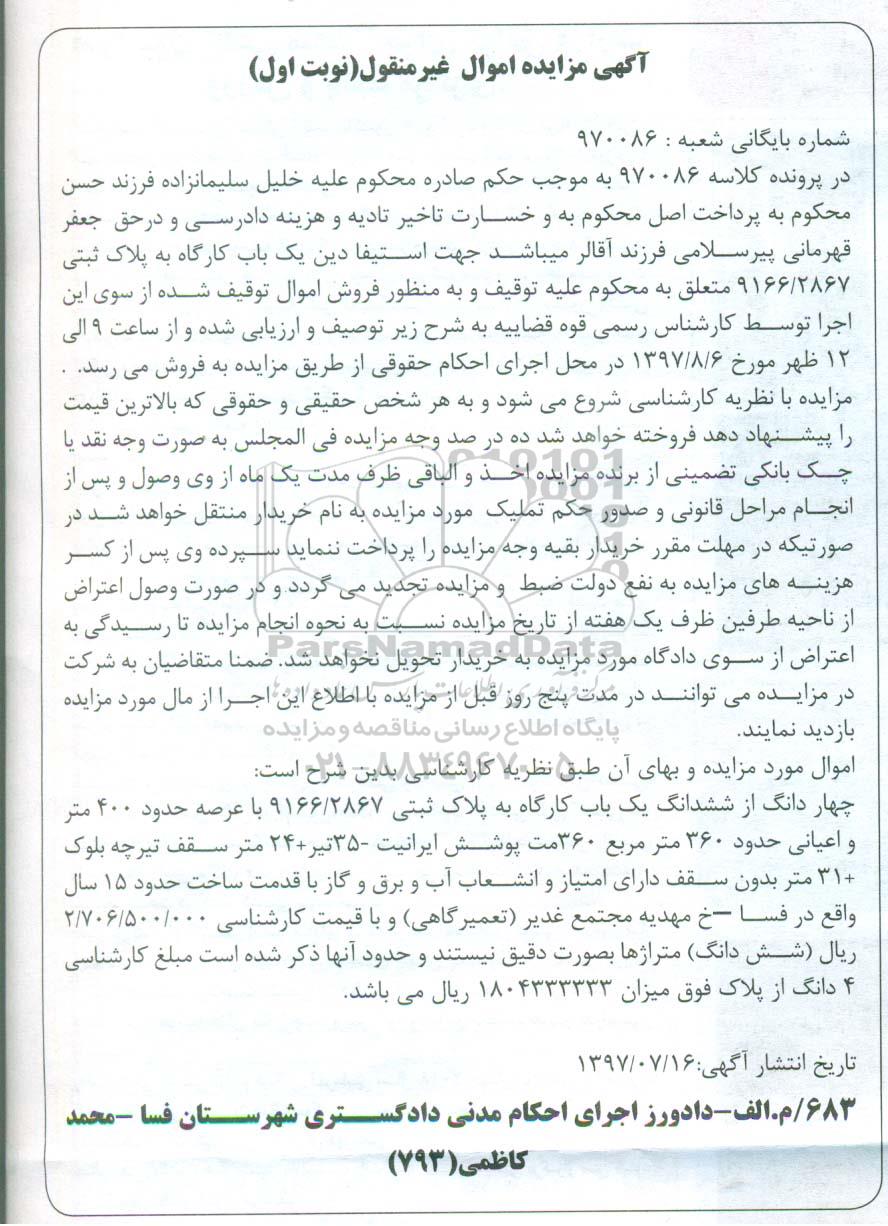 آگهی مزایده اموال غیرمنقول(نوبت اول)
شماره بایگانی شعبه : ۹۷۰۰۸۶
در پرونده کلاسه ۹۷۰۰۸۶ به موجب حکم صادره محکوم علیه خلیل سلیمانزاده فرزند حسن
محکوم به پرداخت اصل محکوم به و خسارت تاخیر تادیه و هزینه دادرسی و درحق جعفر
قهرمانی پیرسلامی فرزند آقالر میباشد جهت استیفا دین یک باب کارگاه به پلاک ثبتی
۹۱۶۶/۲۸۶۷ متعلق به محکوم علیه توقیف و به منظور فروش اموال توقیف شده از سوی این
اجرا توسط کارشناس رسمی قوه قضاییه به شرح زیر توصیف و ارزیابی شده و از ساعت ۹ الی
۱۲ ظهر مورخ ۱۳۹۷/۸/۶ در محل اجرای احکام حقوقی از طریق مزایده به فروش می رسد. .
مزایده با نظریه کارشناسی شروع می شود و به هر شخص حقیقی و حقوقی که بالاترین قیمت
را پیشنهاد دهد فروخته خواهد شد ده در صد وجه مزایده فی المجلس به صورت وجه نقد یا
چک بانکی تضمینی از برنده مزایده اخذ و الباقی ظرف مدت یک ماه از وی وصول و پس از
انجام مراحل قانونی و صدور حکم تملیک مورد مزایده به نام خریدار منتقل خواهد شد در
صورتیکه در مهلت مقرر خریدار بقیه وجه مزایده را پرداخت ننماید سپرده وی پس از کسر
هزینه های مزایده به نفع دولت ضبط و مزایده تجدید می گردد و در صورت وصول اعتراض
از ناحیه طرفین ظرف یک هفته از تاریخ مزایده نسبت به نحوه انجام مزایده تا رسیدگی به
ParsNamadData
اعتراض از سوی دادگاه مورد مزایده به خریدار تحویل نخواهد شد. ضمنا متقاضیان به شرکت
در مزایده می توانند در مدت پنج روز قبل از مزایده با اطلاع این اجرا از مال مورد مزایده
بازدید نمایند.
پایگاه اطلاع رسانی مناقصه و مزایده
۰۲۱-۸۸۳۴۹۶۷۰-۵
اموال مورد مزایده و بهای آن طبق نظریه کارشناسی بدین شرح است:
چهار دانگ از ششدانگ یک باب کارگاه به پلاک ثبتی ۹۱۶۶/۲۸۶۷ با عرصه حدود ۴۰۰ متر
و اعیانی حدود ۳۶۰ متر مربع ۳۶۰مت پوشش ایرانیت -۳۵تیر+۲۴ متر سقف تیرچه بلوک
+۳۱ متر بدون سقف دارای امتیاز و انشعاب آب و برق و گاز با قدمت ساخت حدود ۱۵ سال
واقع در فسا –خ مهدیه مجتمع غدیر (تعمیرگاهی) و با قیمت کارشناسی ۲/۷۰۶/۵۰۰/۰۰۰
ریال (شش دانگ) متراژها بصورت دقیق نیستند و حدود آنها ذکر شده است مبلغ کارشناسی
۴ دانگ از پلاک فوق میزان ۱۸۰۴۳۳۳۳۳۳ ریال می باشد.
تاریخ انتشار آگهی:۱۳۹۷/۰۷/۱۶
۶۸۳/م.الف-دادورز اجرای احکام مدنی دادگستری شهرستان فسا -محمد
کاظمی(۷۹۳)